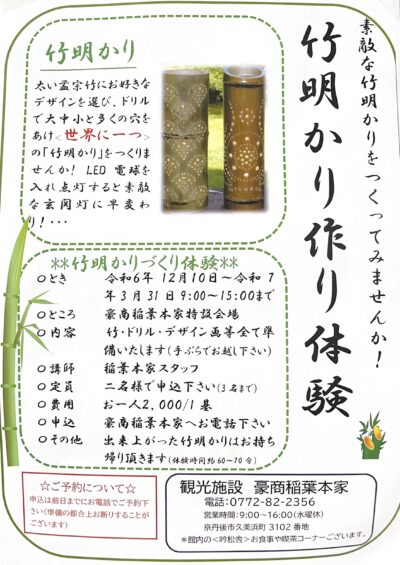 素敵な竹明かりをつくってみませんか！
竹明かり作り体験
竹明かり
太い孟宗竹にお好きな
デザインを選び、ドリル
で大中小と多くの穴を
あけ<世界に一つ>
の「竹明かり」をつくりま
せんか！ LED 電球を
入れ点灯すると素敵
な玄関灯に早変わ
り！・・・
**竹明かりづくり体験**
○とき 令和6年 12月10日～令和 7
年 3 月 31 日 9:00～15:00まで
○ところ 豪商稲葉本家特設会場
○内容 竹・ドリル・デザイン画等全て準
備いたします(手ぶらでお越し下さい)
○講師 稲葉本家スタッフ
○定員 二名様で申込下さい(3名まで)
○費用 お一人2,000/1 基
○申込 豪商稲葉本家へお電話下さい
○その他 出来上がった竹明かりはお持ち
帰り頂きます(体験時間約60～70分)
☆ご予約について☆
申込は前日までにお電話でご予約下
さい(準備の都合上お断りすることが
ございます)
観光施設 豪商稲葉本家
電話:0772-82-2356
営業時間:9:00～16:00(水曜休)
京丹後市久美浜町 3102 番地
*館内の<吟松舎>お食事や喫茶コーナーございます。